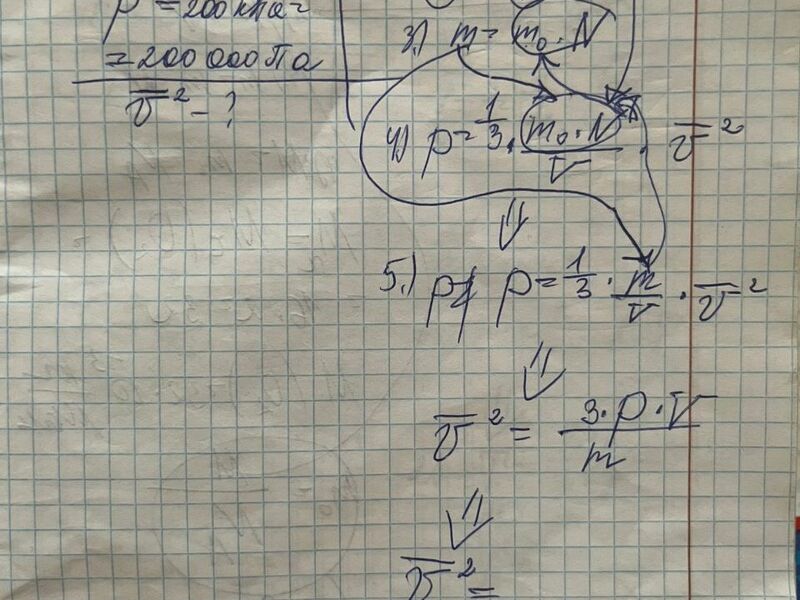 p = 200 кПа =
= 200 000 Па
v̅² - ?
3.) m = m₀ · N
4) p = 1/3 · m₀ · N / V · v̅²
⇓
5.) p = 1/3 · m/V · v̅²
⇓
v̅² = 3 · p · V / m
⇓
v̅² =